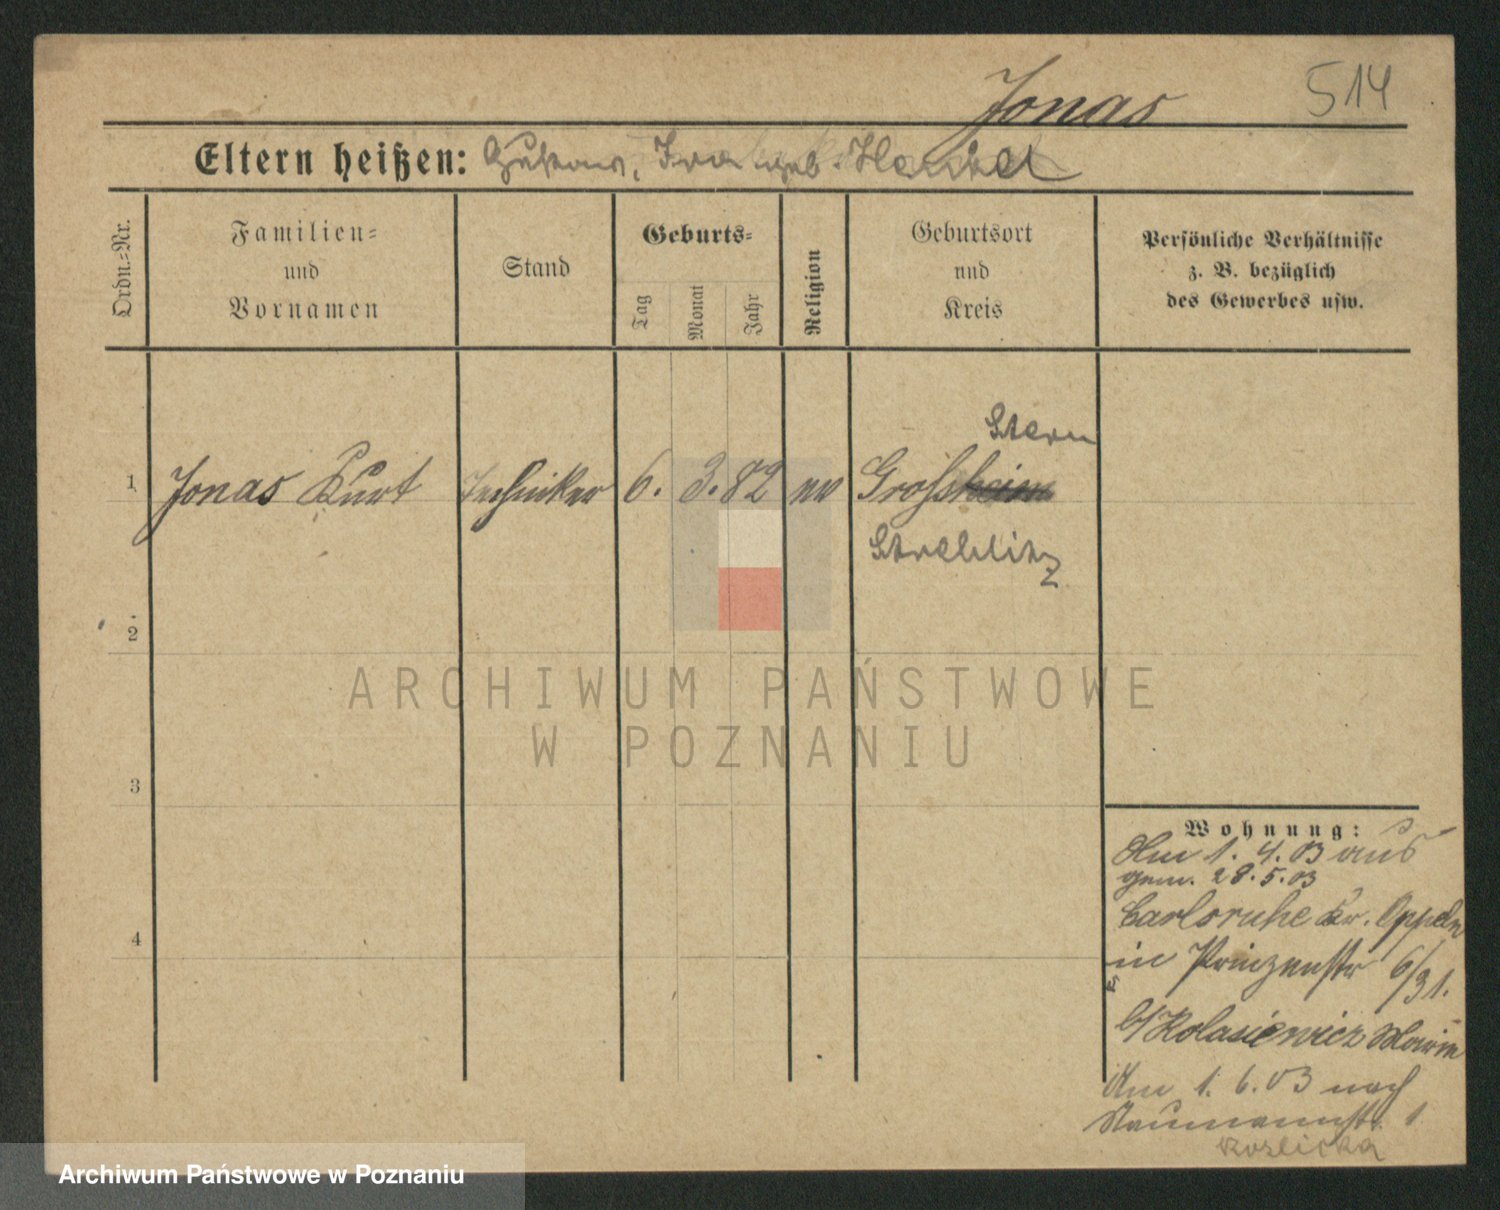 Jonas 514
Eltern heißen: Gustav, Ida geb. Henkel
Ordn.-Nr.
Familien-
und
Vornamen
Stand
Geburts-
Tag
Monat
Jahr
Religion
Geburtsort
und
Kreis
Persönliche Verhältnisse
z. B. bezüglich
des Gewerbes usw.
Stein
1 Jonas Kurt Techniker 6. 3. 82 ev Gross
Strehlitz
2
ARCHIWUM PAŃSTWOWE
W POZNANIU
3
4
Wohnung:
Am 1. 4. 03 aus
gem. 28. 5. 03
Carlsruhe Kr. Oppeln
in Prinzenstr 6/31.
b/Kolasiewicz Marie
Am 1. 6. 03 nach
Naumannstr. 1
Koslicka
Archiwum Państwowe w Poznaniu